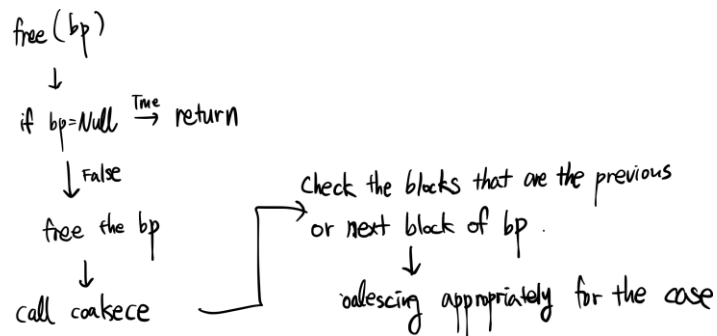 free (bp)
if bp=Null True return
False
free the bp
call coalsece
Check the blocks that are the previous
or next block of bp.
oalescing appropriately for the case